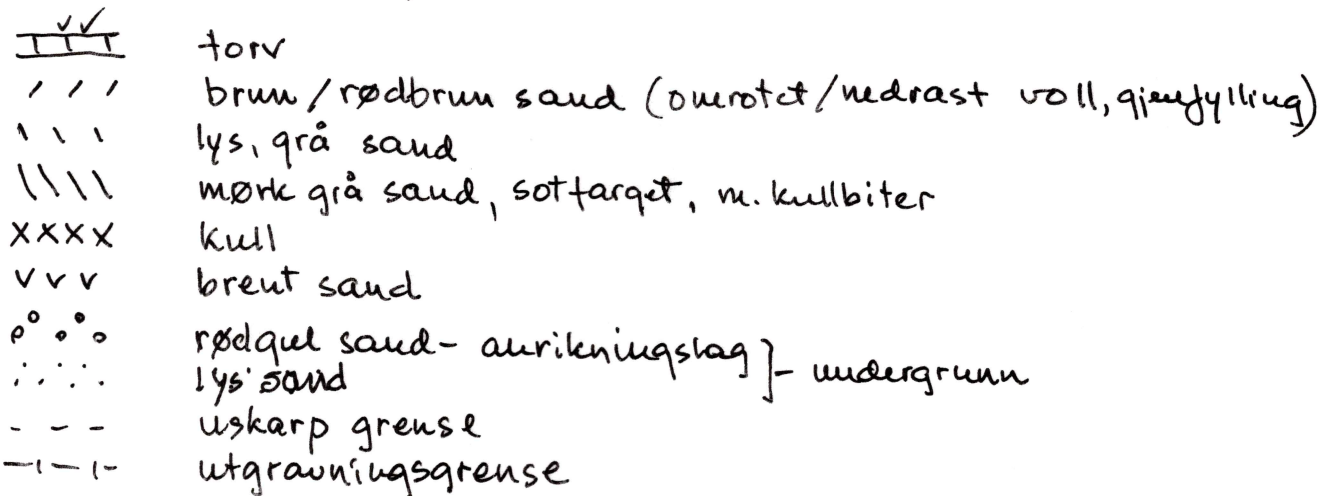 torv
brun/rødbrun sand (omrotet/nedrast voll, gjenfylling)
lys, grå sand
mørk grå sand, sotfarget, m. kullbiter
kull
brent sand
rødgul sand - anrikningslag ]- undergrunn
lys sand
uskarp grense
utgravningsgrense